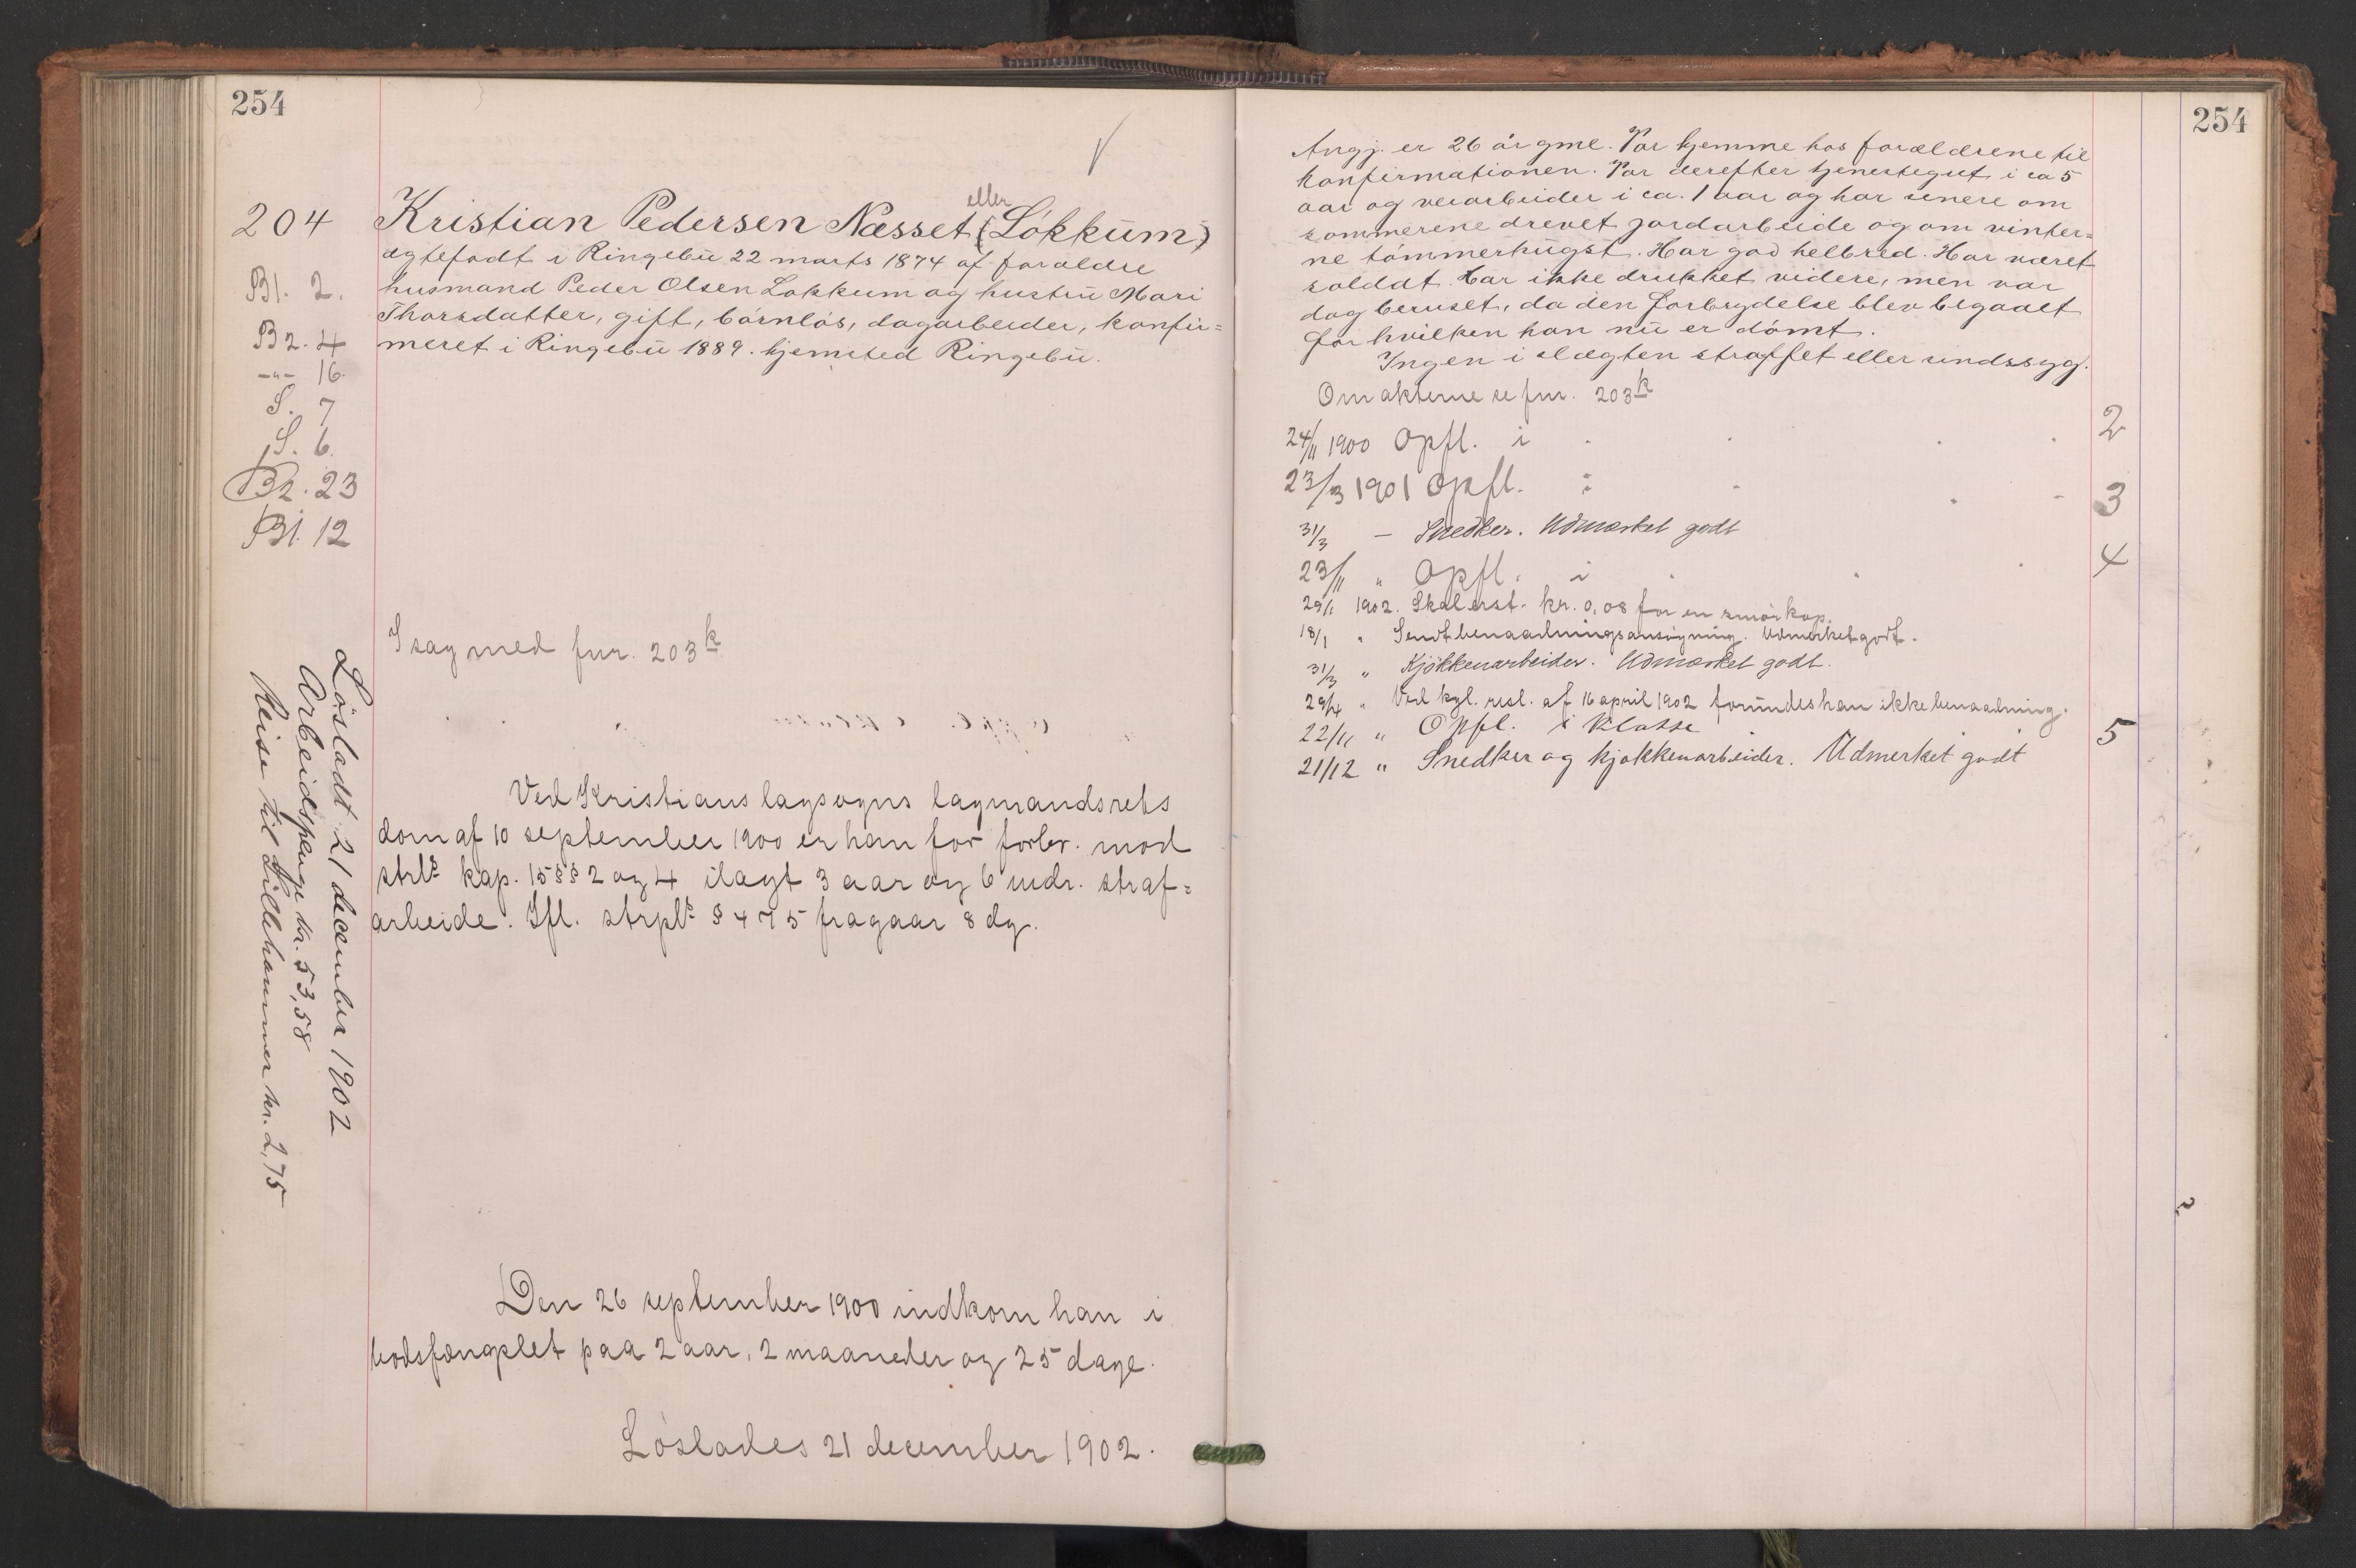 254
204
Bl. 2.
B2. 4
-"- 16.
S. 7
S. 6.
B2. 23
Bl. 12
eller
Kristian Pedersen Næsset (Løkkum)
ægtefødt i Ringebu 22 marts 1874 af forældre
husmand Peder Olsen Løkkum og hustru Mari
Thorsdatter, gift, børnløs, dagarbeider, konfir=
meret i Ringebu 1889. hjemsted Ringebu.
I sag med fnr. 203 k
Ved Kristians lagsogns lagmandsrets
dom af 10 september 1900 er han for forbr. mod
strl. kap. 15 §§ 2 og 4 ilagt 3 aar og 6 mdr. straf=
arbeide. Ifl. strpl. § 475 fragaar 8 dg.
Den 26 september 1900 indkom han i
bodsfængslet paa 2 aar, 2 maaneder og 25 dage.
Løslades 21 december 1902.
Løsladt 21 december 1902
Arbeidspenge kr. 53,58
Reise til Lillehammer kr. 2,75
254
Angj. er 26 år gml. Var hjemme hos forældrene til
konfirmationen. Var derefter tjenestegut i ca 5
aar og veiarbeider i ca. 1 aar og har senere om
sommerene drevet jordarbeide og om vinter=
ne tømmerhugst. Har god helbred. Har været
soldat. Har ikke drukket videre, men var
dog beruset, da den forbrydelse blev begaaet
for hvilken han nu er dømt.
Ingen i slægten straffet eller sindssyg.
Om akterne se fnr. 203 k
24/11 1900 Opfl. i 2
23/3 1901 Opfl. : 3
31/3 — Snedker. Udmærket godt
23/11 " Opfl. i 4
29/1 1902. Skal erst. kr. 0,08 for en smørkop.
18/1 " Sendt benaadningsansøgning. Udmerket godt.
31/3 " Kjøkkenarbeider. Udmærket godt.
29/4 " Ved kgl. resl. af 16 april 1902 forundes han ikke benaadning.
22/11 " Opfl. i Klasse 5
21/12 " Snedker og kjøkkenarbeider. Udmerket godt